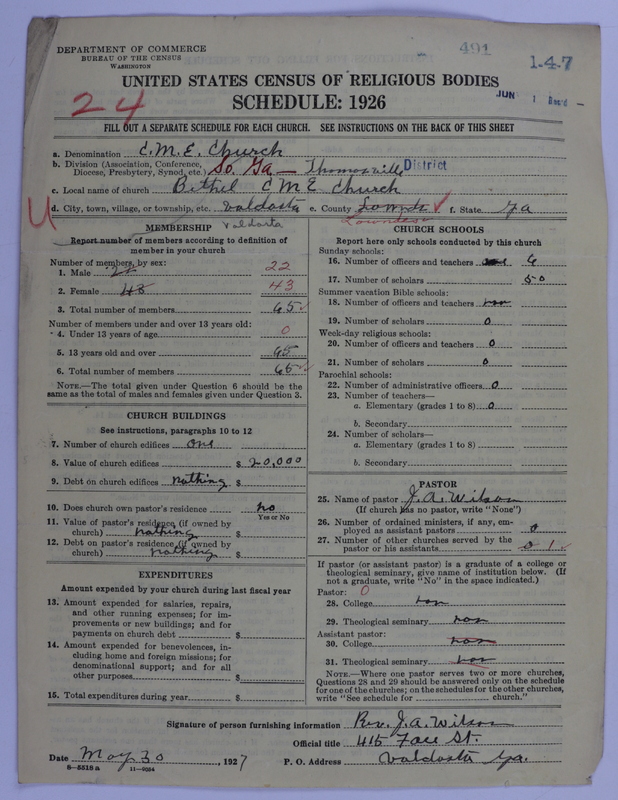 491
1-4-7
DEPARTMENT OF COMMERCE
BUREAU OF THE CENSUS
WASHINGTON
UNITED STATES CENSUS OF RELIGIOUS BODIES
SCHEDULE: 1926
JUN 1 Rec'd
24
FILL OUT A SEPARATE SCHEDULE FOR EACH CHURCH. SEE INSTRUCTIONS ON THE BACK OF THIS SHEET
a. Denomination C.M.E. Church
b. Division (Association, Conference, Diocese, Presbytery, Synod, etc.) So. Ga — Thomasville District
c. Local name of church Bethel C M E Church
d. City, town, village, or township, etc. Valdosta e. County Lownds f. State Ga
U
Valdosta
Lowndes
MEMBERSHIP
Report number of members according to definition of
member in your church
Number of members, by sex:
1. Male 22 22
2. Female 43 43
3. Total number of members 65
Number of members under and over 13 years old:
4. Under 13 years of age 0
5. 13 years old and over 65
6. Total number of members 65
NOTE.—The total given under Question 6 should be
same as the total of males and females given under Question 3.
CHURCH BUILDINGS
See instructions, paragraphs 10 to 12
7. Number of church edifices one
8. Value of church edifices $ 20,000
9. Debt on church edifices nothing $
10. Does church own pastor's residence no
Yes or No
11. Value of pastor's residence (if owned by
church) nothing $
12. Debt on pastor's residence (if owned by
church) nothing $
EXPENDITURES
Amount expended by church during last fiscal year
13. Amount expended for salaries, repairs,
and other running expenses; for im-
provements or new buildings; and for
payments on church debt $
14. Amount expended for benevolences, in-
cluding home and foreign missions; for
denominational support; and for all
other purposes $
15. Total expenditures during year $
CHURCH SCHOOLS
Report here only schools conducted by this church
Sunday schools:
16. Number of officers and teachers 6
17. Number of scholars 50
Summer vacation Bible schools:
18. Number of officers and teachers non
19. Number of scholars 0
Week-day religious schools:
20. Number of officers and teachers 0
21. Number of scholars 0
Parochial schools:
22. Number of administrative officers 0
23. Number of teachers—
a. Elementary (grades 1 to 8) 0
b. Secondary
24. Number of scholars—
a. Elementary (grades 1 to 8)
b. Secondary
PASTOR
25. Name of pastor J. A. Wilson
(If church has no pastor, write "None")
26. Number of ordained ministers, if any, em-
ployed as assistant pastors 0
27. Number of other churches served by the
pastor or his assistants 0 1
If pastor (or assistant pastor) is a graduate of a college or
theological seminary, give name of institution below. (If
not a graduate, write "No" in the space indicated.)
Pastor: 0
28. College non
29. Theological seminary non
Assistant pastor:
30. College non
31. Theological seminary non
NOTE.—Where one pastor serves two or more churches,
Questions 28 and 29 should be answered only on the schedule
for one of the churches; on the schedules for the other churches,
write "See schedule for church."
Signature of person furnishing information Rev. J. A. Wilson
Official title 415 Face St.
Date May 30, 1927 P. O. Address Valdosta Ga.
8-5518 a 11-9034